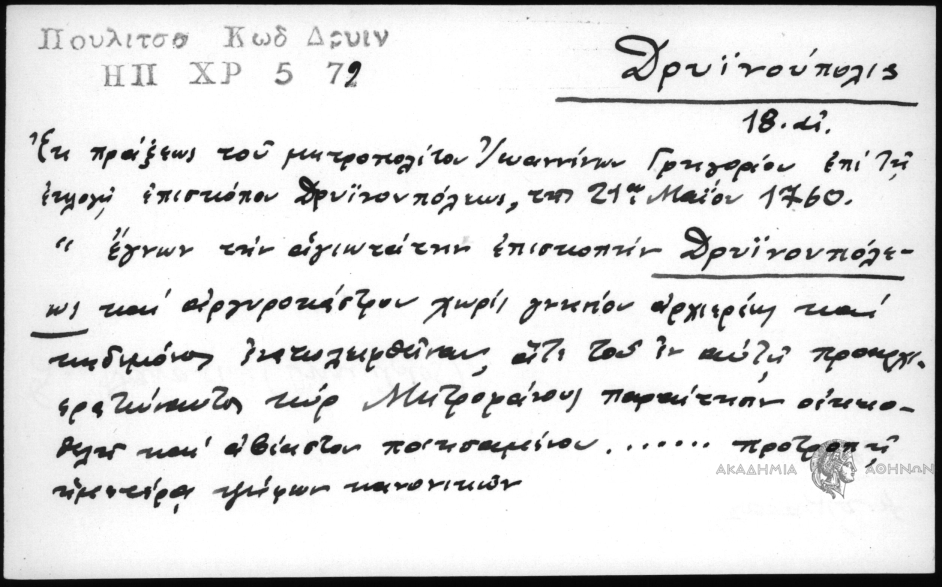 Πουλιτσα Κωδ Δρυιν
ΗΠ ΧΡ 5 72
Δρυϊνούπολις
18. αἰ.
Ἐκ πράξεως τοῦ μητροπολίτου Ἰωαννίνων Γρηγορίου ἐπὶ τῇ
ἐκλογῇ ἐπισκόπου Δρυϊνουπόλεως, τῇ 21ῃ Μαΐου 1760.
" ἔγνων τὴν ἁγιωτάτην ἐπισκοπὴν Δρυϊνουπόλε-
ως καὶ ἀργυροκάστρου χωρὶς γνησίου ἀρχιερέως καὶ
κηδεμόνος ἐναπολειφθεῖσαν, ἅτε τοῦ ἐν αὐτῇ προαρχι-
ερατεύσαντος κὺρ Μητροφάνους παραίτησιν οἰκειο-
θελῆ καὶ ἀβίαστον ποιησαμένου....... προτροπῇ
ἡμετέρᾳ ψήφων κανονικῶν
ΑΚΑΔΗΜΙΑ ΑΘΗΝΩΝ